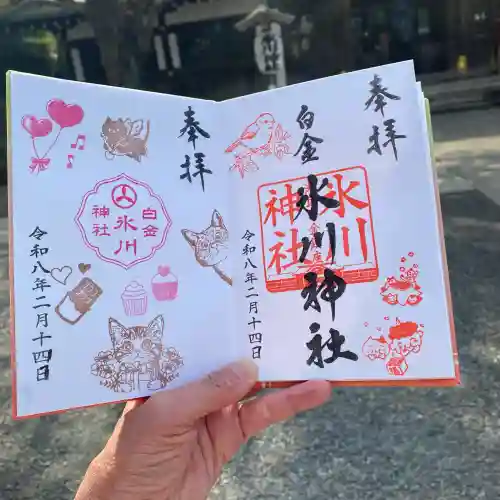 奉拝
白金
氷川神社
氷川
神社
令和八年二月十四日
奉拝
白金
氷川
神社
令和八年二月十四日